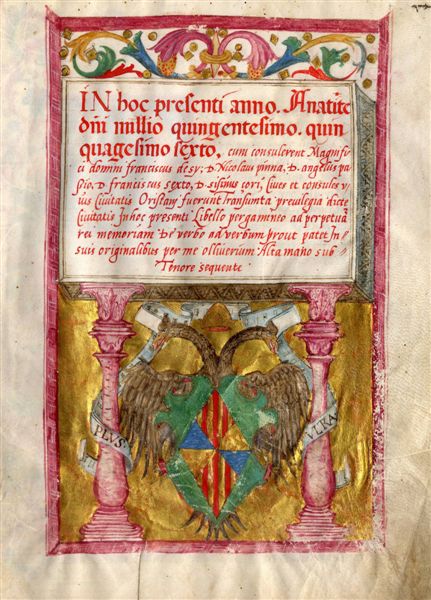 IN hoc presenti anno. Anatite
dni millio quingentesimo. quin
quagesimo sexto, cum consulerent Magnifi
ci domini franciscus desy, D. Nicolaus pinna, D. angelus pa
D. franciscus sexto, D. sisinus cori, ciues et consules
Ciuitatis Oristany fuerunt Transumta preuilegia dicte
Ciuitatis In hoc presenti Libello pergamineo ad perpetuã
rei memoriam De verbo ad verbum prout patet In
suis originalibus per me olliuerium Alta mano sub
Tenore sequente
PLVS
VLTRA